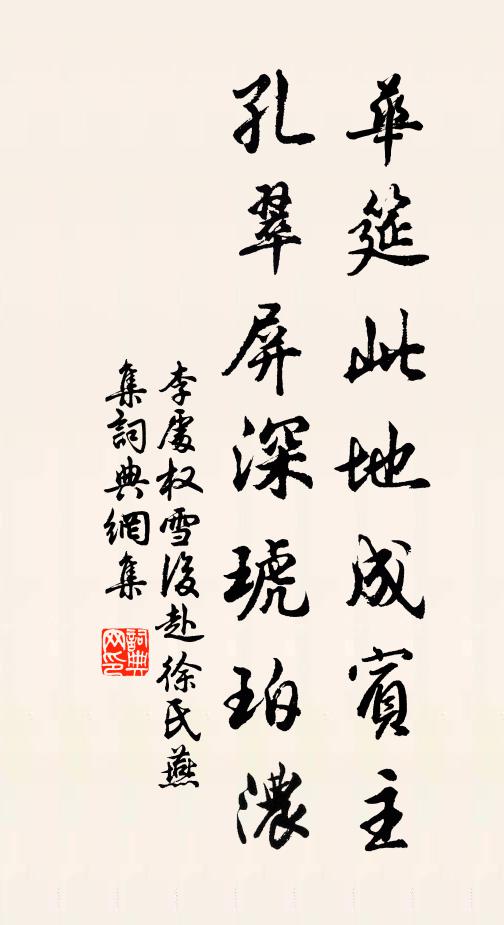 華筵此地成賓主
孔翠屏深琥珀濃
李處权雪後赴徐民燕
集詞典網集
詞典网印